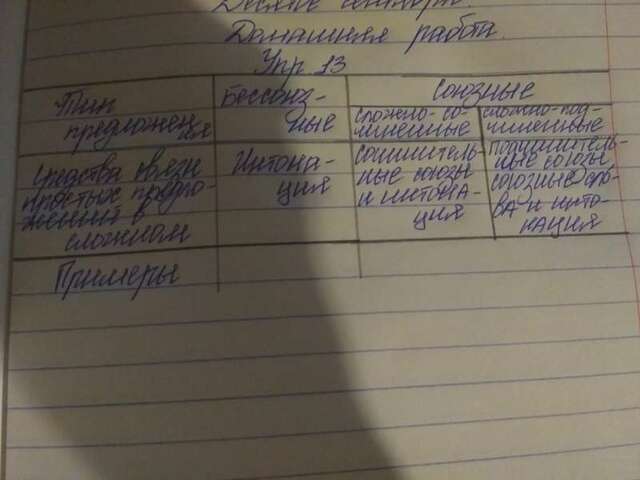 Десятое сентября.
Домашняя работа.
Упр. 13
Тип
предложен
ия
Бессоюз-
ные
Союзные
сложно-со-
чиненные
сложно-под-
чиненные
Средства связи
простых предло-
жений в
сложном
Интона-
ция
сочинитель-
ные союзы
и интона-
ция
Подчинитель-
ные союзы,
союзные сло-
ва и инто-
нация
Примеры